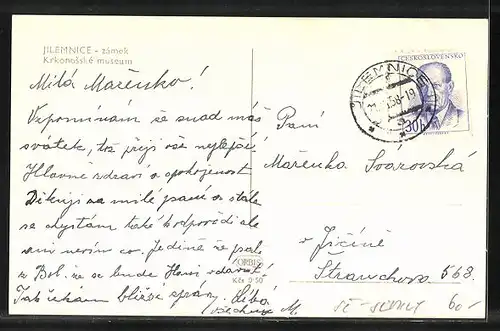 JILEMNICE - zámek
Krkonošské museum
Milá Mařenko!
Vzpomínám že snad máš
svátek, tož přeji vše nejlepší
Hlavně zdraví a spokojenost
Děkuji za milé psaní a stále
se chystám také k odpovědi ale
ani nevím co. Jedině že psala
z Bol. že se bude Heni vdávat
Tak čekám bližší zprávy. Líba
všechny M.
ORBIS
Kčs 0·50
JILEMNICE
58-19
ČESKOSLOVENSKO
30h
Paní
Mařenka Svárovská
v Jičíně
Štrauchova 563.
60,-